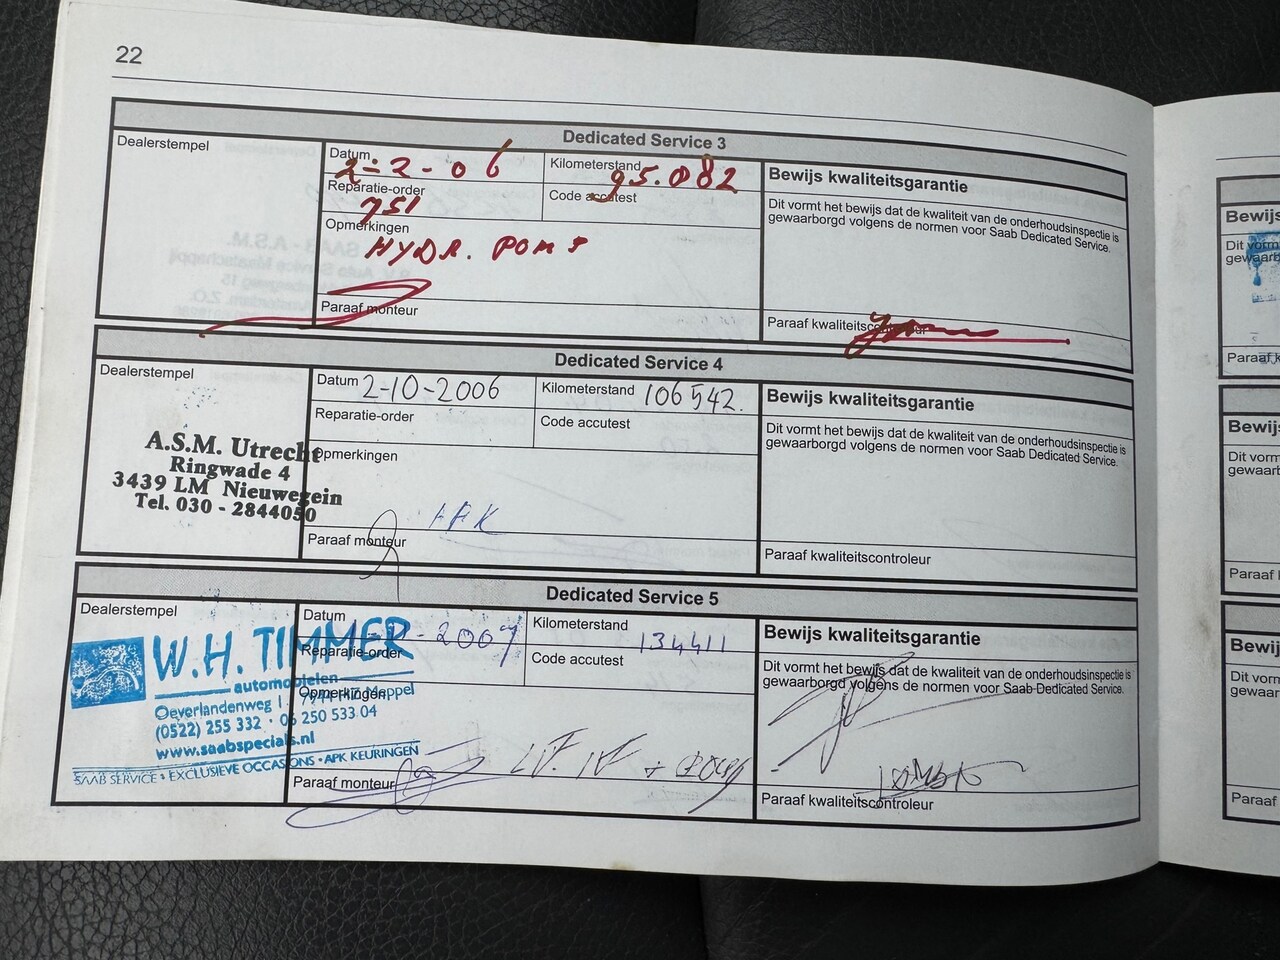 22
Dedicated Service 3
Dealerstempel
Datum 2-2-06
Kilometerstand 95.082
Reparatie-order 751
Code accutest
Opmerkingen
HYDR. POMP
Paraaf monteur
Bewijs kwaliteitsgarantie
Dit vormt het bewijs dat de kwaliteit van de onderhoudsinspectie is
gewaarborgd volgens de normen voor Saab Dedicated Service.
Paraaf kwaliteitscontroleur
Dedicated Service 4
Dealerstempel
A.S.M. Utrecht
Ringwade 4
3439 LM Nieuwegein
Tel. 030 - 2844050
Datum 2-10-2006
Kilometerstand 106542.
Reparatie-order
Code accutest
Opmerkingen
Paraaf monteur
Bewijs kwaliteitsgarantie
Dit vormt het bewijs dat de kwaliteit van de onderhoudsinspectie is
gewaarborgd volgens de normen voor Saab Dedicated Service.
Paraaf kwaliteitscontroleur
Dedicated Service 5
Dealerstempel
W.H. TIMMER
automobielen
Oeverlandenweg 1 Meppel
(0522) 255 332 · 06 250 533 04
www.saabspecials.nl
SAAB SERVICE · EXCLUSIEVE OCCASIONS · APK KEURINGEN
Datum
Kilometerstand 134411
Reparatie-order
Code accutest
Opmerkingen
Paraaf monteur
Bewijs kwaliteitsgarantie
Dit vormt het bewijs dat de kwaliteit van de onderhoudsinspectie is
gewaarborgd volgens de normen voor Saab Dedicated Service.
Paraaf kwaliteitscontroleur
Bewijs
Dit vorm
gewaarb
Paraaf k
Bewijs
Dit vorm
gewaarb
Paraaf
Bewij
Dit vorm
gewaar
Paraaf